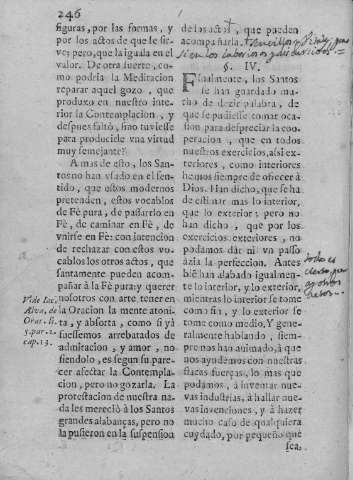 246
figuras, por las formas, y
por los actos de que le sir-
ve; pero, que la iguala en el
valor. De otra suerte, co-
mo podria la Meditacion
reparar aquel gozo, que
produxo en nuestro inte-
rior la Contemplacion, y
despues faltò, sino tuviesse
para producirle vna virtud
muy semejante?
A mas de esto, los San-
tos no han vsado en el sen-
tido, que estos modernos
pretenden, estos vocablos
de Fè pura, de passarlo en
Fè, de caminar en Fè, de
vnirse en Fè: con intencion
de rechazar con estos vo-
cablos los otros actos, que
santamente pueden acom-
pañar à la Fè pura: y querer
nosotros con arte, tener en
la Oracion la mente atoni-
ta, y absorta, como si yà
fuessemos arrebatados de
admiracion, y amor, no
siendolo, es segun su pare-
cer afectar la Contempla-
cion, pero no gozarla. La
protestacion de nuestra na-
da les mereciò à los Santos
grandes alabanças, pero no
la pusieron en la suspension
Vide Iac.
Alva. de
Orat. li.
5. par. 2.
cap. 13.
de los actos, que pueden
acompañarla.
§. IV.
Finalmente, los Santos
se han guardado ma-
cho de dezir palabra, de
que se pudiesse tomar oca-
sion para despreciar la coo-
peracion, que en todos
nuestros exercicios, assi ex-
teriores, como interiores
hemos siempre de ofrecer à
Dios. Han dicho, que se ha
de estimar mas lo interior,
que lo exterior; pero no
han dicho, que por los
exercicios exteriores, no
podamos dàr ni vn passo
àzia la perfeccion. Antes
bie han alabado igualmen-
te lo interior, y lo exterior,
mientras lo interior se tome
como fin, y lo exterior se
tome como medio. Y gene-
ralmente hablando, siem-
pre nos han animado, à que
nos ayudèmos con nuestras
flacas fuerças, lo mas que
podamos, à inventar nue-
vas industrias, à hallar nue-
vas invenciones, y à hazer
mucho caso de qualquiera
cuydado, por pequeño que
sea.